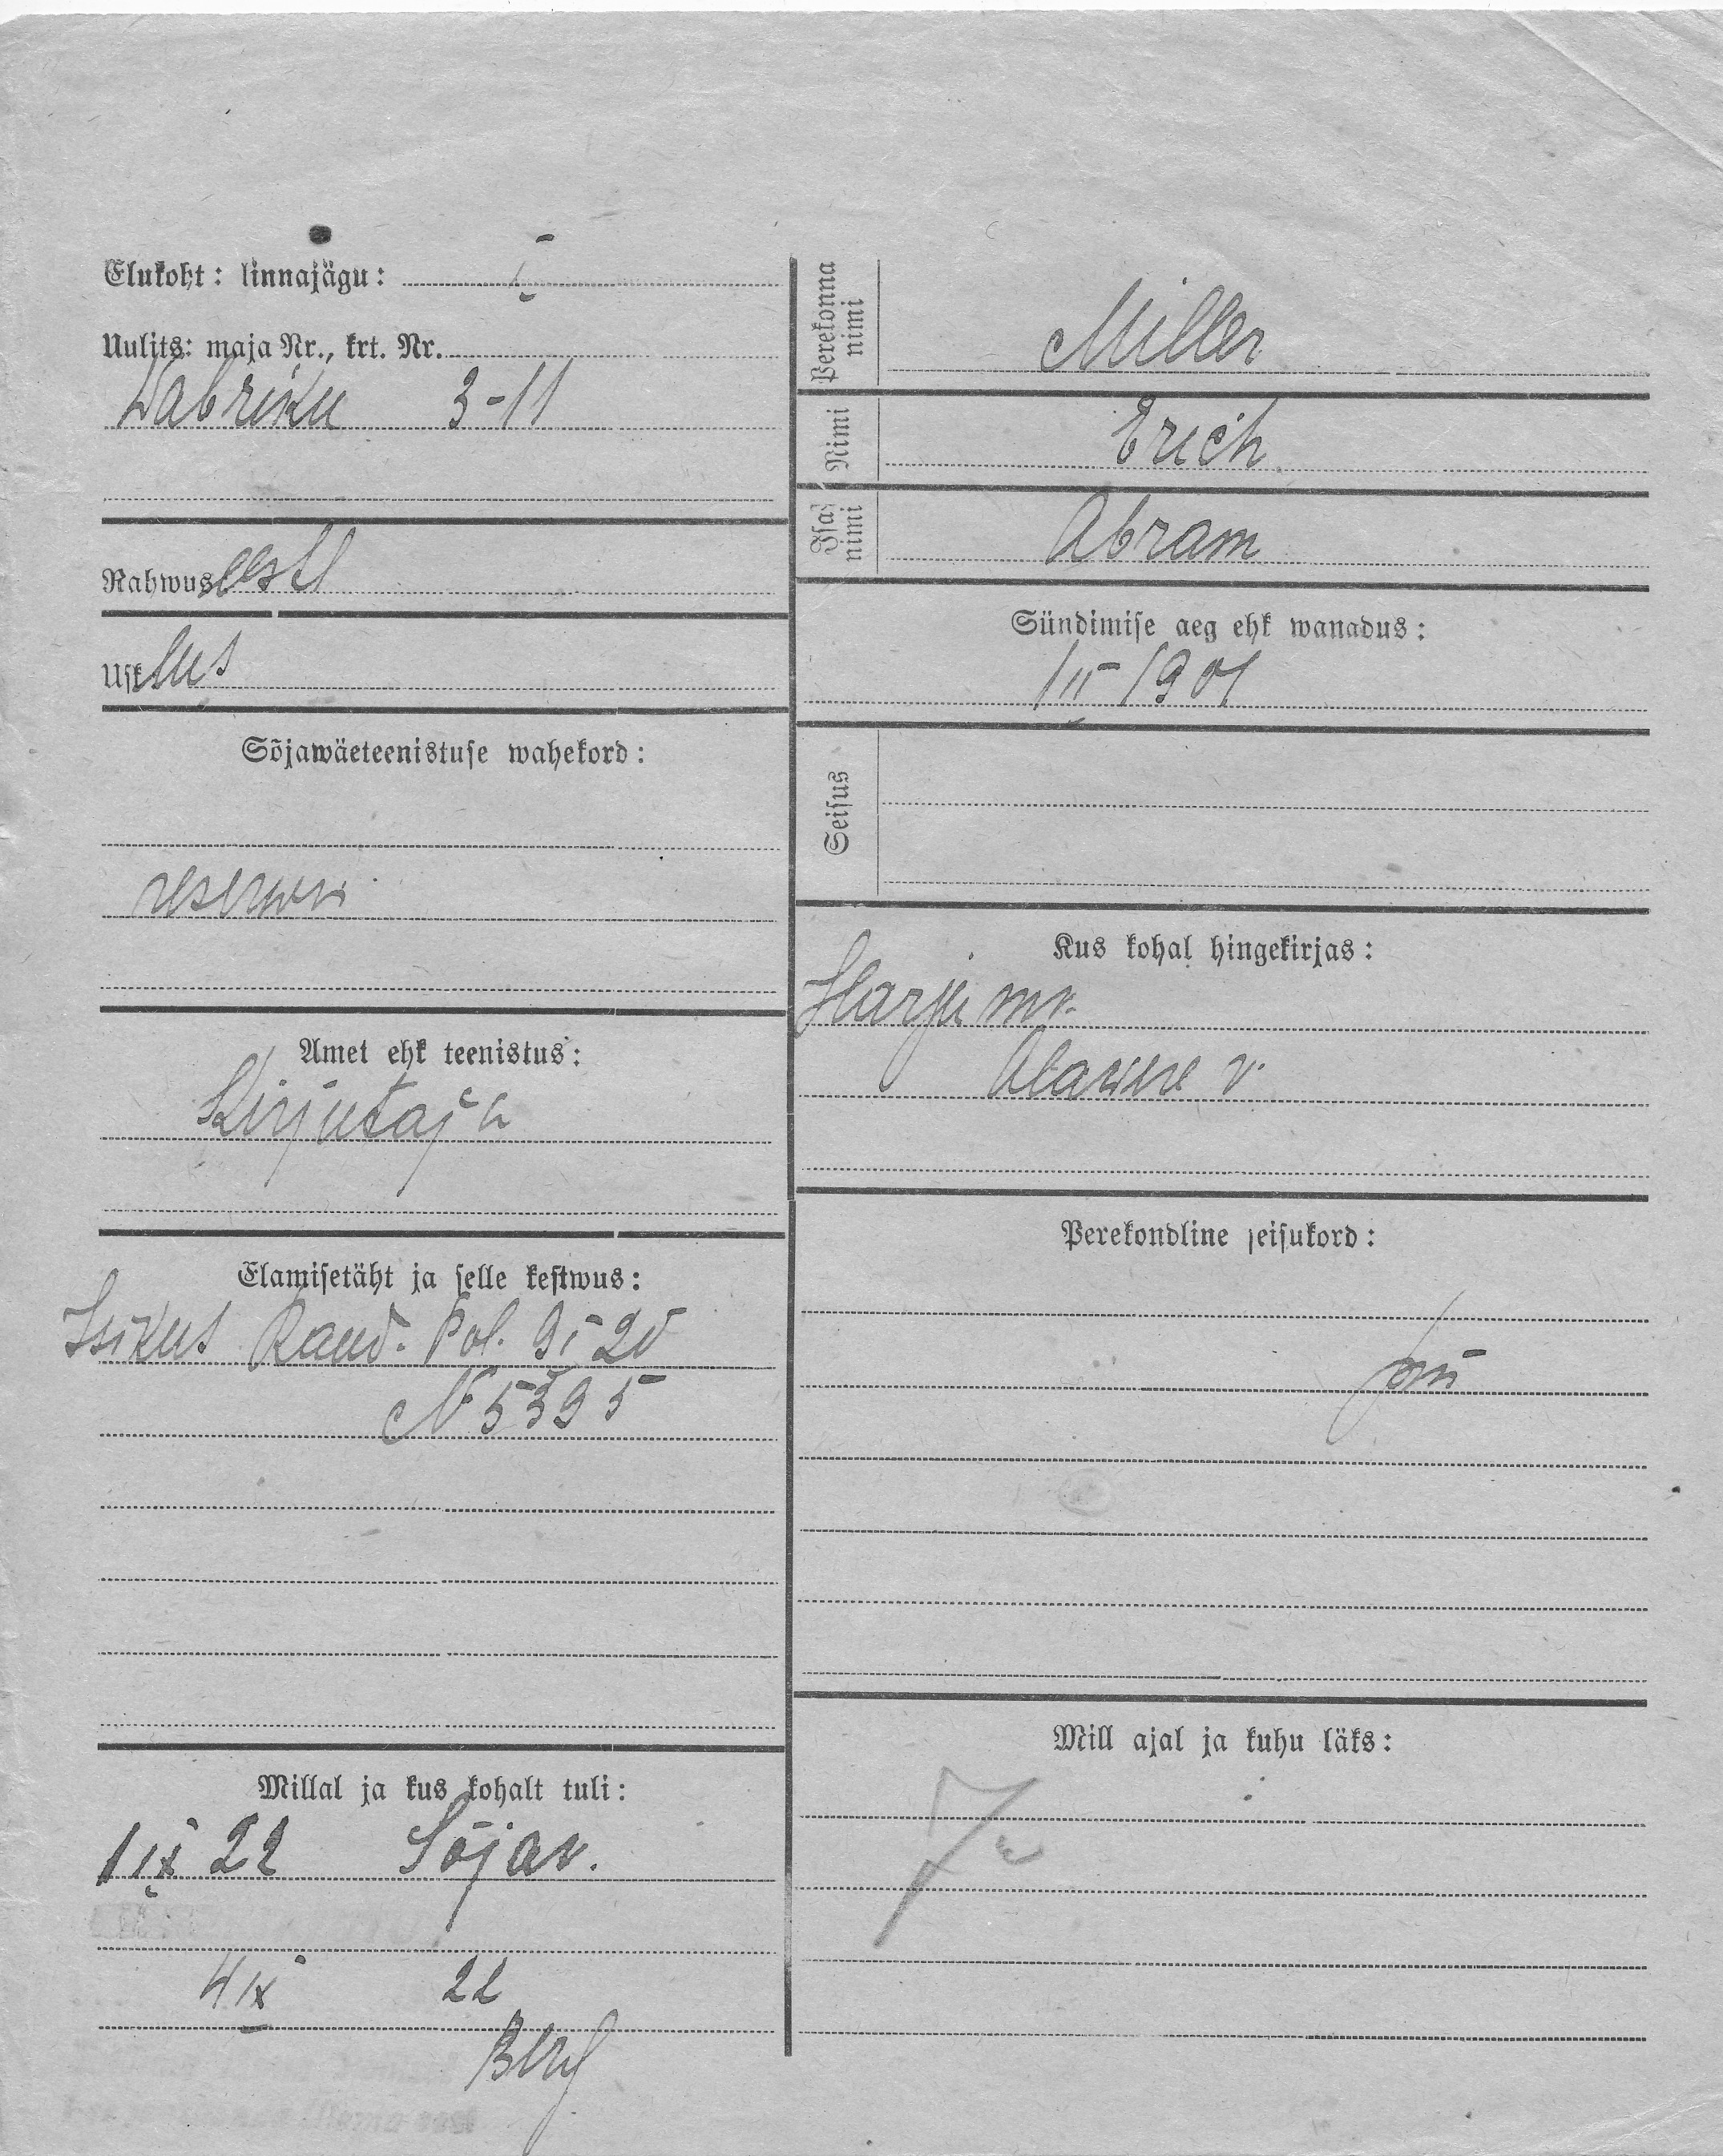 Elukoht: linnajägu: I
Uulits: maja Nr., krt. Nr.
Wabriku 3-11
Rahwus eesti
Usk lus
Sõjawäeteenistuse wahekord:
reserwis
Amet ehk teenistus:
Kirjutaja
Elamisetäht ja selle kestwus:
Isikut Raud. Pol.
N 5395
Millal ja kus kohalt tuli:
1 IX 22 Sõjav.
4 IX 22
Berg
Perekonna nimi
Miller
Nimi
Erich
Isa nimi
Abram
Sündimise aeg ehk wanadus:
1/II-1901
Seisus
Kus kohal hingekirjas:
Harju mk.
Alawere v.
Perekondline seisukord:
Mill ajal ja kuhu läks: